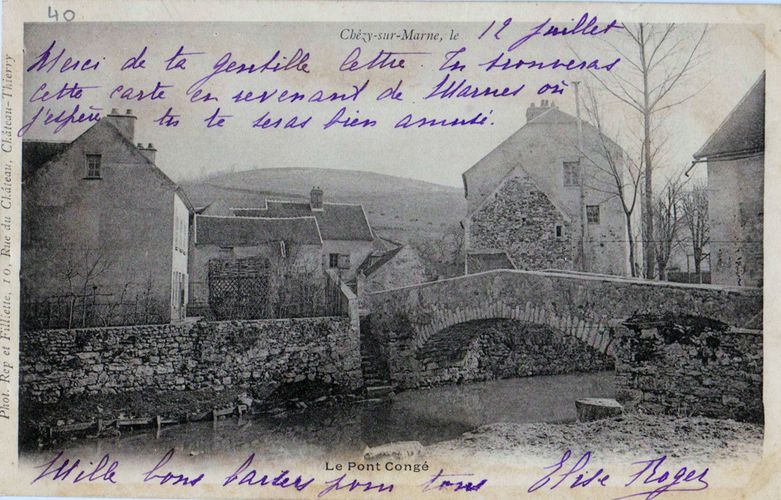 40
Chézy-sur-Marne, le 12 Juillet
Merci de ta gentille lettre. Tu trouveras
cette carte en revenant de Marnes où
j'espère tu te seras bien amusé.
Phot. Rep et Filliette, 10, Rue du Château, Château-Thierry
Le Pont Congé
Mille bons baisers pour tous Elise Roger